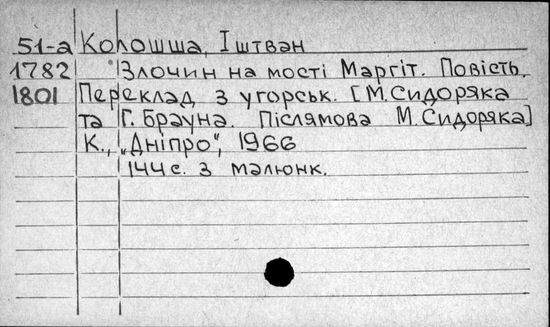 51-а Колошша, Іштван
1782 Злочин на мості Маргіт. Повість.
1801 Переклад з угорськ. [М.Сидоряка
та Г. Брауна. Післямова М.Сидоряка]
К., „Дніпро", 1966
144 с. з малюнк.